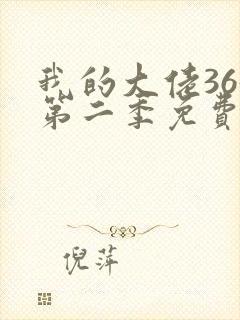 我的大佬36
第二季免費
倪萍